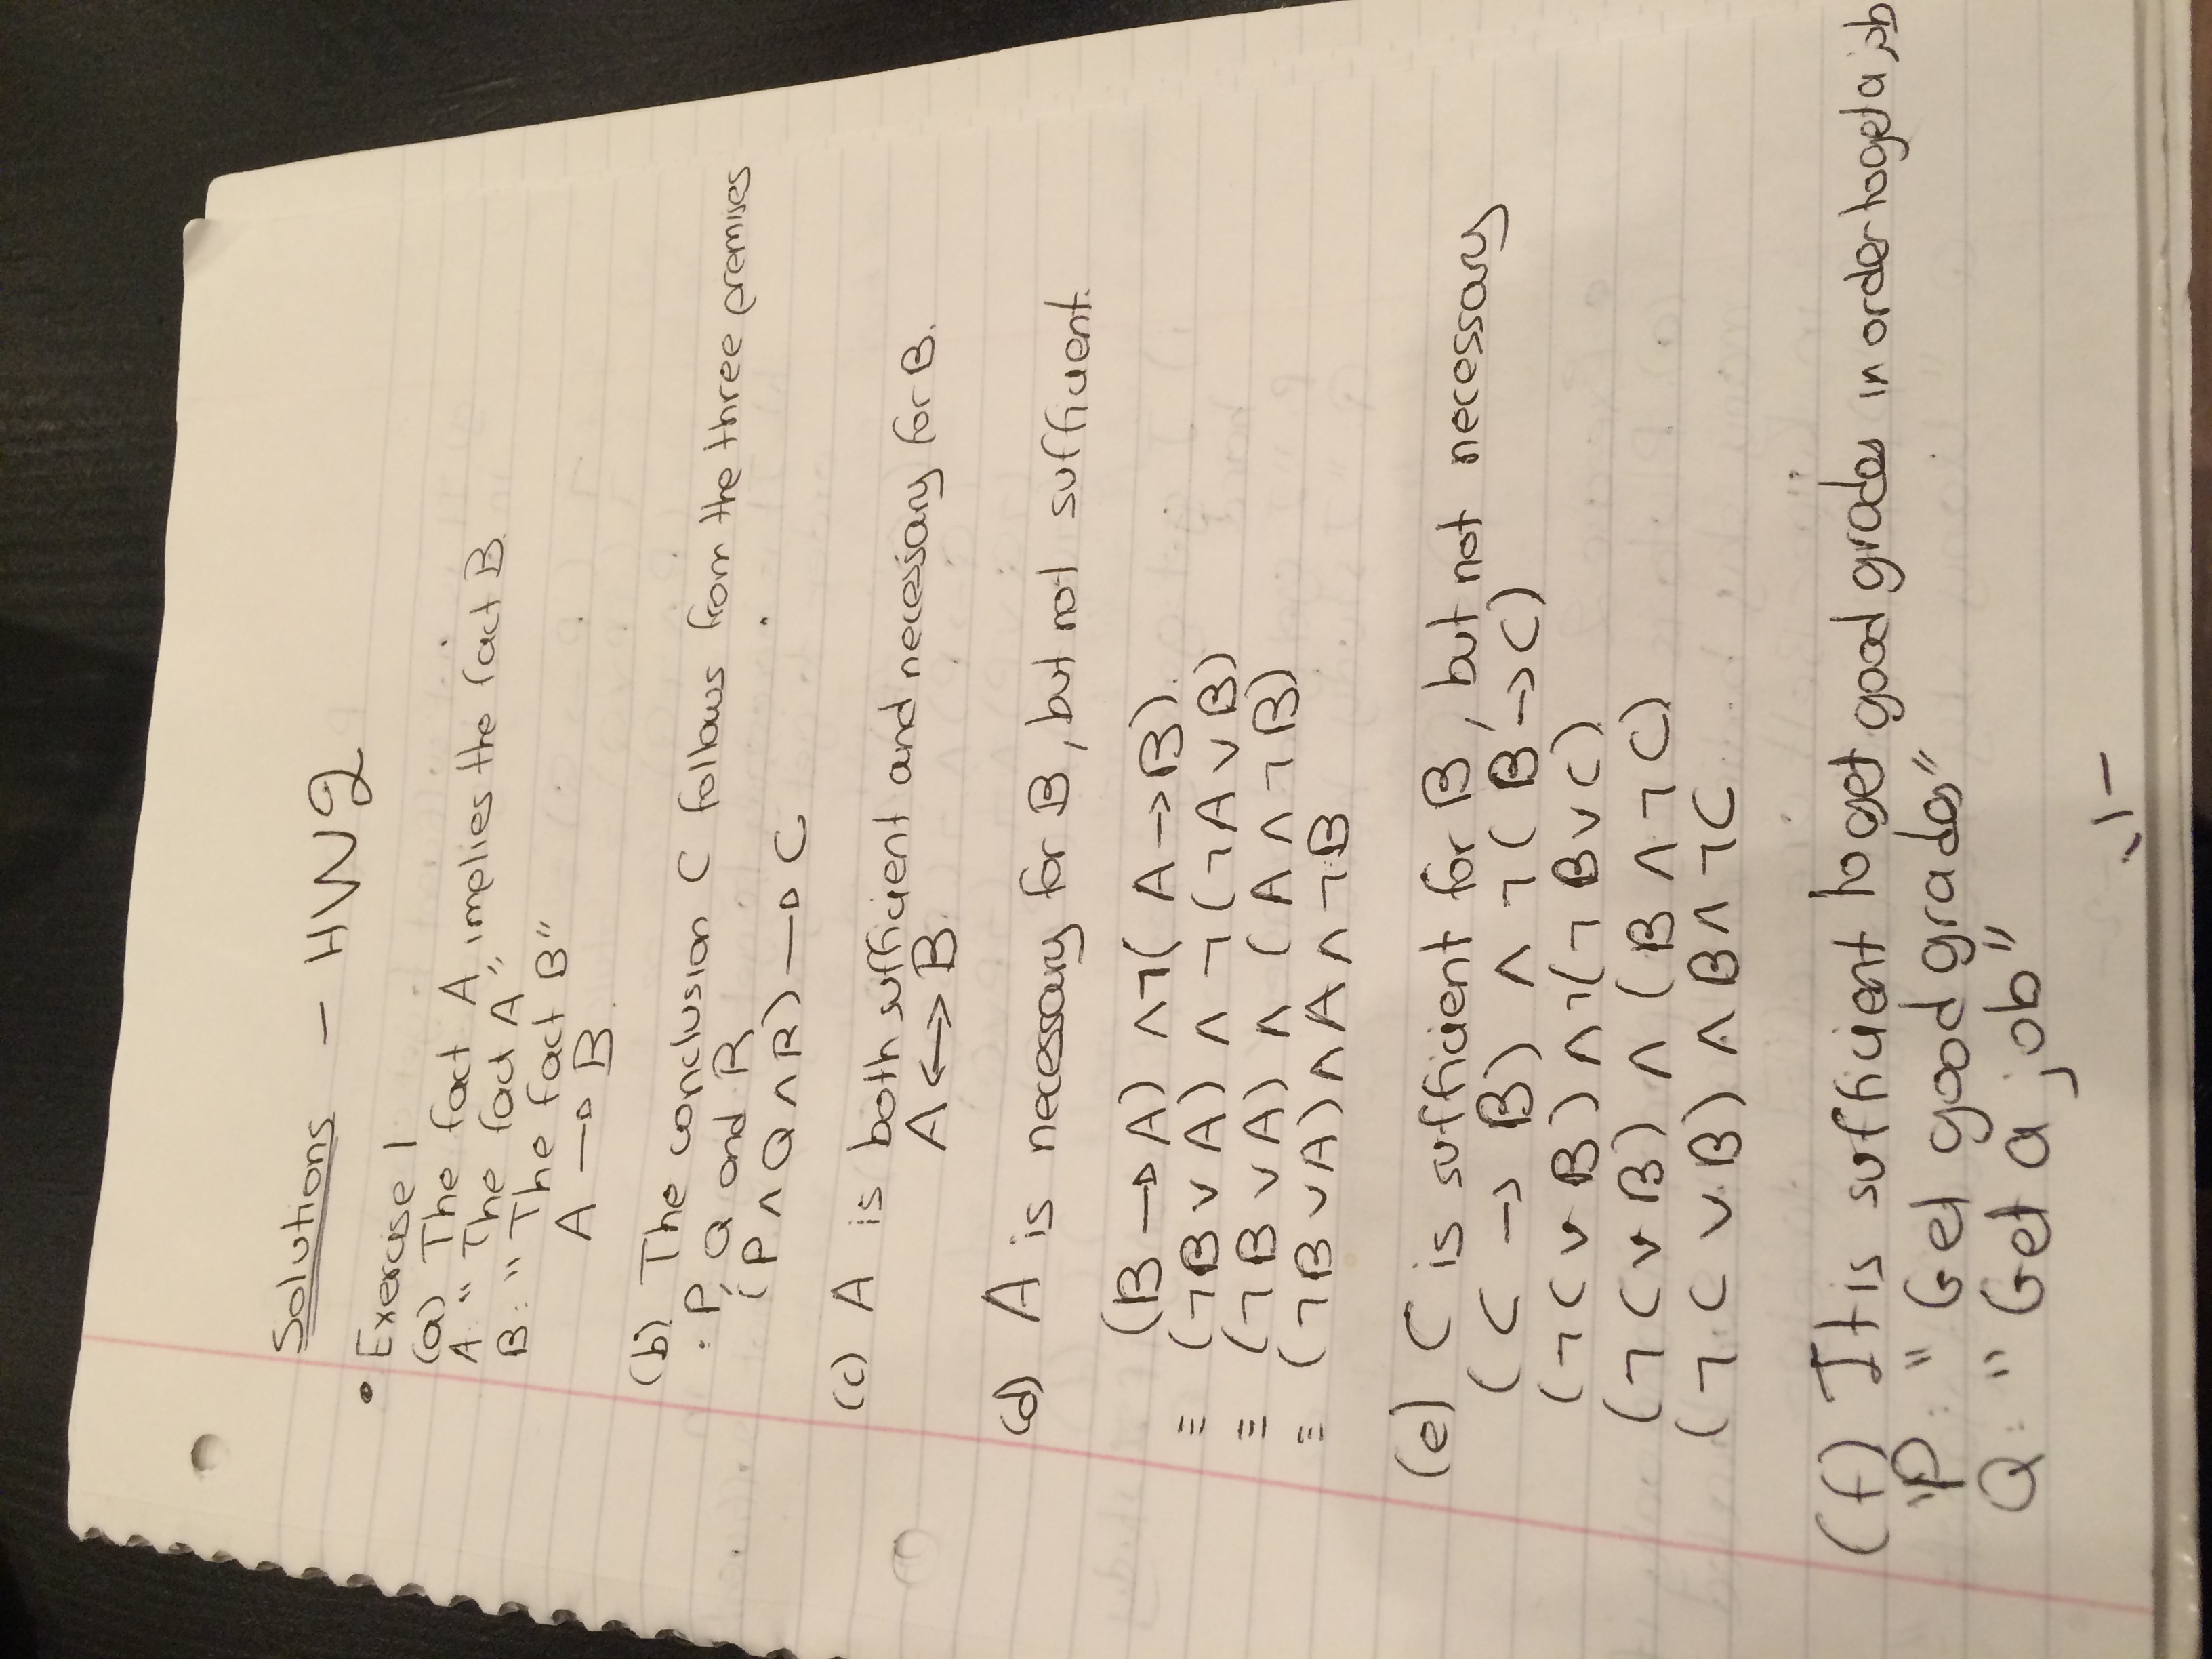 Solutions - HW2
• Exercise 1
(a) The fact A implies the fact B.
A: "The fact A"
B: "The fact B"
A → B.
(b). The conclusion C follows from the three premises
P, Q and R
(P ∧ Q ∧ R) → C
(c) A is both sufficient and necessary for B.
A ↔ B.
(d) A is necessary for B, but not sufficient.
(B → A) ∧ ¬(A → B).
≡ (¬B ∨ A) ∧ ¬(¬A ∨ B)
≡ (¬B ∨ A) ∧ (A ∧ ¬B)
≡ (¬B ∨ A) ∧ A ∧ ¬B
(e) C is sufficient for B, but not necessary
(C → B) ∧ ¬(B → C)
(¬C ∨ B) ∧ ¬(¬B ∨ C)
(¬C ∨ B) ∧ (B ∧ ¬C)
(¬C ∨ B) ∧ B ∧ ¬C
(f) It is sufficient to get good grades in order to get a job
P: "Get good grades"
Q: "Get a job"
-1-